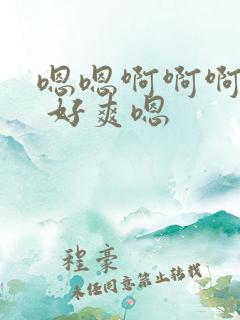 嗯嗯啊啊啊
好爽嗯
程豪
未经同意禁止转载